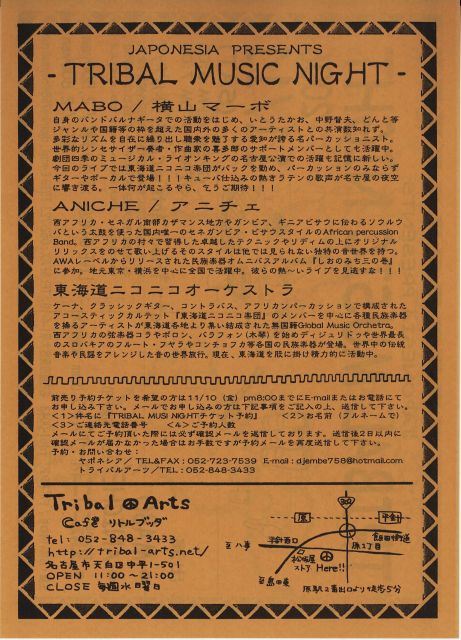 JAPONESIA PRESENTS
- TRIBAL MUSIC NIGHT -
MABO / 横山マーボ
自身のバンドバルナギータでの活動をはじめ、いとうたかお、中野督夫、どんと等
ジャンルや国籍等の枠を超えた国内外の多くのアーティストとの共演数知れず。
多彩なリズムを自在に繰り出し聴衆を魅了する愛知が誇る名パーカッショニスト。
世界的シンセサイザー奏者・作曲家の喜多郎のサポートメンバーとしても活躍中。
劇団四季のミュージカル・ライオンキングの名古屋公演での活躍も記憶に新しい。
今回のライブでは東海道ニコニコ楽団がバックを勤め、パーカッションのみならず
ギターやボーカルで登場!!!キューバ仕込みの熱きラテンの歌声が名古屋の夜空
に響き渡る。一体何が起こるやら、乞うご期待!!!
ANICHE / アニチェ
西アフリカ・セネガル南部カザマンス地方やガンビア、ギニアビサウに伝わるソウルウ
バという太鼓を使った国内唯一のセネガンビア・ビサウスタイルのAfrican percussion
Band。西アフリカの村々で習得した卓越したテクニックやリディムの上にオリジナル
リリックスをのせて歌い上げるそのスタイルは他では見られない独特の音世界を持つ。
AWAレーベルからリリースされた民族楽器オムニバスアルバム『しおのみち三の巻』
に参加。地元東京・横浜を中心に全国で活躍中。彼らの熱〜いライブを見逃すな!!!
東海道ニコニコオーケストラ
ケーナ、クラッシックギター、コントラバス、アフリカンパーカッションで構成された
アコースティックカルテット『東海道ニコニコ楽団』のメンバーを中心に各種民族楽器
を操るアーティストが東海道各地より集い結成された無国籍Global Music Orchetra。
西アフリカの弦楽器コラやボロン、バラフォン(木琴)を始めディジュリドゥや世界最長
のスロバキアのフルート・フヤラやコンチョフカ等各国の民族楽器が登場。世界中の伝統
音楽や民謡をアレンジした音の世界旅行。現在、東海道を股に掛け精力的に活動中。
前売り予約チケットを希望の方は11/10(金)pm8:00までにE-mailまたはお電話にて
お申し込み下さい。メールでお申し込みの方は下記事項をご記入の上、送信して下さい。
<1>件名に『TRIBAL MUSI NIGHTチケット予約』 <2>お名前(フルネームで)
<3>ご連絡先電話番号 <4>ご予約人数
メールにてご予約頂いた際には必ず確認メールを返信しております。送信後2日以内に
確認メールが届かなかった場合はお手数ですが予約メールを再度送信して下さい。
予約・お問い合わせ:
ヤポネシア/TEL&FAX:052-723-7539 E-mail:djembe758@hotmail.com
トライバルアーツ/TEL:052-848-3433
Tribal Arts
Café リトルブッダ
tel: 052-848-3433
http://tribal-arts.net/
名古屋市天白区中平1-501
OPEN 11:00〜21:00
CLOSE 毎週水曜日
原
平針
至八事
平針西口
原1丁目
飯田街道
松坂屋
ストア
Here!!
至島田
原駅2番出口より徒歩5分